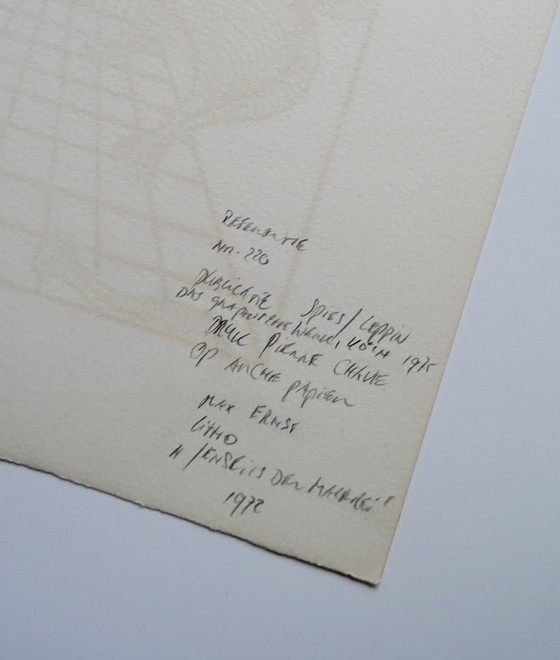 REFERENTIE
NR. 220
PUBLICATIE SPIES/LEPPIN
DAS GRAPHISCHE WERK, KÖLN 1975
DRUK PIERRE CHAVE
OP ARCHE PAPIER
MAX ERNST
LITHO
"JENSEITS DER MALEREI"
1972